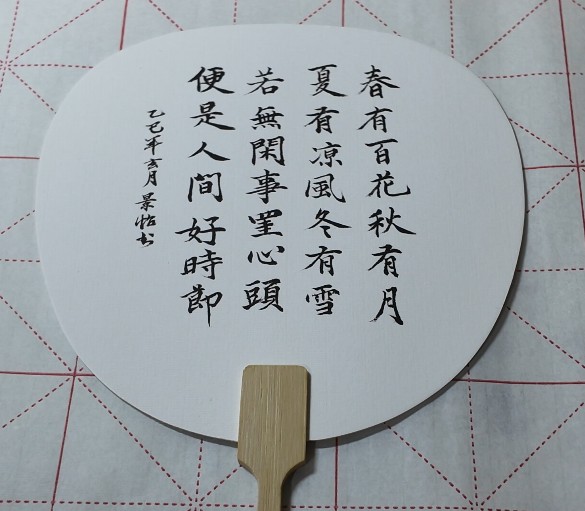 春有百花秋有月
夏有凉風冬有雪
若無閑事罣心頭
便是人間好時節
乙巳年玄月景怡书